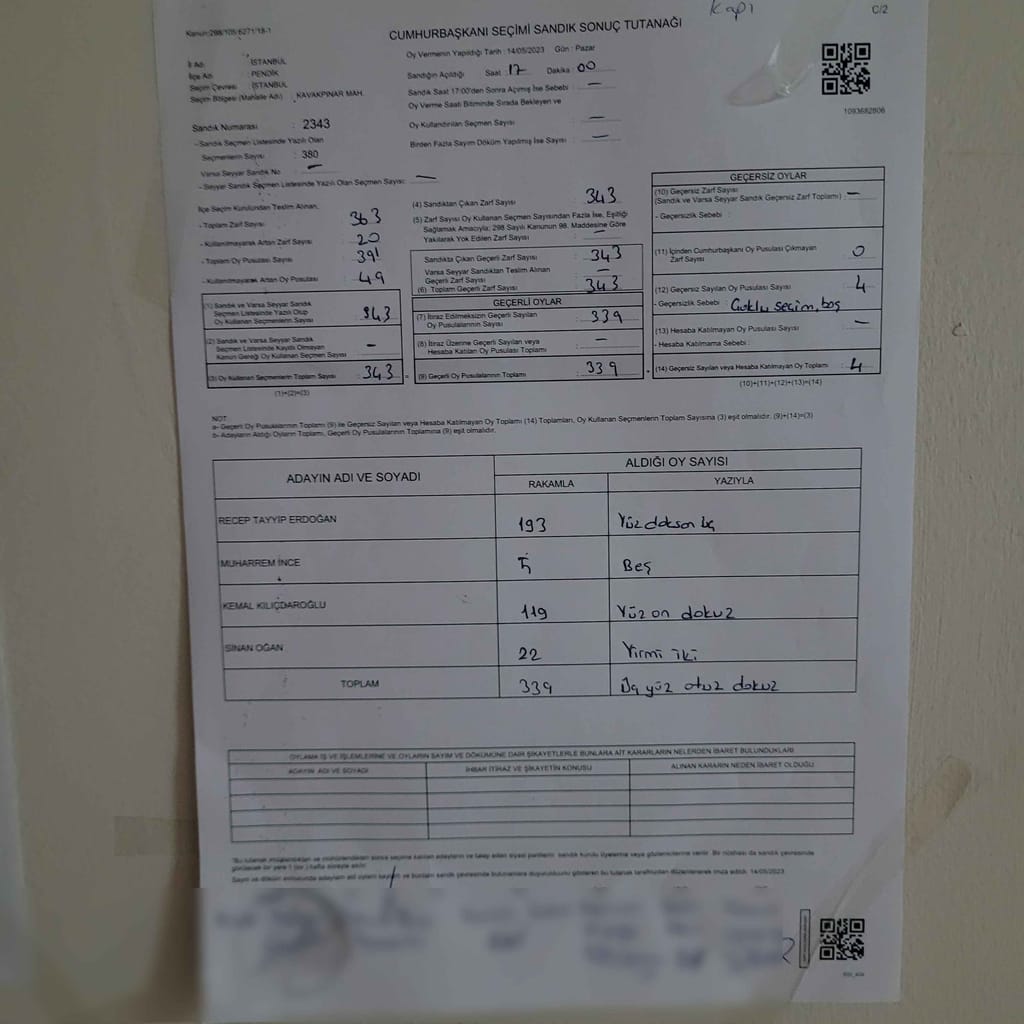 Kapı
C/2
Kanun:298/105/6271/18-1
CUMHURBAŞKANI SEÇİMİ SANDIK SONUÇ TUTANAĞI
Oy Vermenin Yapıldığı Tarih : 14/05/2023 Gün : Pazar
İl Adı : İSTANBUL
İlçe Adı : PENDİK
Seçim Çevresi : İSTANBUL
Seçim Bölgesi (Mahalle Adı) : KAVAKPINAR MAH.
Sandığın Açıldığı Saat : 17 Dakika : 00
Sandık Saat 17:00'den Sonra Açılmış İse Sebebi : —
Oy Verme Saati Bitiminde Sırada Bekleyen ve
Oy Kullandırılan Seçmen Sayısı : —
Birden Fazla Sayım Döküm Yapılmış İse Sayısı : —
1093682806
Sandık Numarası : 2343
- Sandık Seçmen Listesinde Yazılı Olan
Seçmenlerin Sayısı : 380
Varsa Seyyar Sandık No : —
- Seyyar Sandık Seçmen Listesinde Yazılı Olan Seçmen Sayısı : —
İlçe Seçim Kurulundan Teslim Alınan;
- Toplam Zarf Sayısı : 363
- Kullanılmayarak Artan Zarf Sayısı : 20
- Toplam Oy Pusulası Sayısı : 391
- Kullanılmayarak Artan Oy Pusulası : 49
(1) Sandık ve Varsa Seyyar Sandık
Seçmen Listesinde Yazılı Olup
Oy Kullanan Seçmenlerin Sayısı : 343
(2) Sandık ve Varsa Seyyar Sandık
Seçmen Listesinde Kayıtlı Olmayan
Kanun Gereği Oy Kullanan Seçmen Sayısı : —
(3) Oy Kullanan Seçmenlerin Toplam Sayısı : 343
(1)+(2)=(3)
(4) Sandıktan Çıkan Zarf Sayısı : 343
(5) Zarf Sayısı Oy Kullanan Seçmen Sayısından Fazla İse, Eşitliği
Sağlamak Amacıyla; 298 Sayılı Kanunun 98. Maddesine Göre
Yakılarak Yok Edilen Zarf Sayısı : —
Sandıkta Çıkan Geçerli Zarf Sayısı : 343
Varsa Seyyar Sandıktan Teslim Alınan
Geçerli Zarf Sayısı : —
(6) Toplam Geçerli Zarf Sayısı : 343
GEÇERLİ OYLAR
(7) İtiraz Edilmeksizin Geçerli Sayılan
Oy Pusulalarının Sayısı : 339
(8) İtiraz Üzerine Geçerli Sayılan veya
Hesaba Katılan Oy Pusulası Toplamı : —
(9) Geçerli Oy Pusulalarının Toplamı : 339
GEÇERSİZ OYLAR
(10) Geçersiz Zarf Sayısı
(Sandık ve Varsa Seyyar Sandık Geçersiz Zarf Toplamı) : —
- Geçersizlik Sebebi :
(11) İçinden Cumhurbaşkanı Oy Pusulası Çıkmayan
Zarf Sayısı : 0
(12) Geçersiz Sayılan Oy Pusulası Sayısı : 4
- Geçersizlik Sebebi : Çoklu seçim, boş
(13) Hesaba Katılmayan Oy Pusulası Sayısı : —
- Hesaba Katılmama Sebebi :
(14) Geçersiz Sayılan veya Hesaba Katılmayan Oy Toplamı : 4
(10)+(11)+(12)+(13)=(14)
NOT:
a- Geçerli Oy Pusulalarının Toplamı (9) ile Geçersiz Sayılan veya Hesaba Katılmayan Oy Toplamı (14) Toplamları, Oy Kullanan Seçmenlerin Toplam Sayısına (3) eşit olmalıdır. (9)+(14)=(3)
b- Adayların Aldığı Oyların Toplamı, Geçerli Oy Pusulalarının Toplamına (9) eşit olmalıdır.
ADAYIN ADI VE SOYADI ALDIĞI OY SAYISI
RAKAMLA YAZIYLA
RECEP TAYYİP ERDOĞAN 193 Yüz doksan üç
MUHARREM İNCE 5 Beş
KEMAL KILIÇDAROĞLU 119 Yüz on dokuz
SİNAN OĞAN 22 Yirmi iki
TOPLAM 339 Üç yüz otuz dokuz
OYLAMA İŞ VE İŞLEMLERİNE VE OYLARIN SAYIM VE DÖKÜMÜNE DAİR ŞİKAYETLERLE BUNLARA AİT KARARLARIN NELERDEN İBARET BULUNDUKLARI
ADAYIN ADI VE SOYADI İHBAR İTİRAZ VE ŞİKAYETİN KONUSU ALINAN KARARIN NEDEN İBARET OLDUĞU